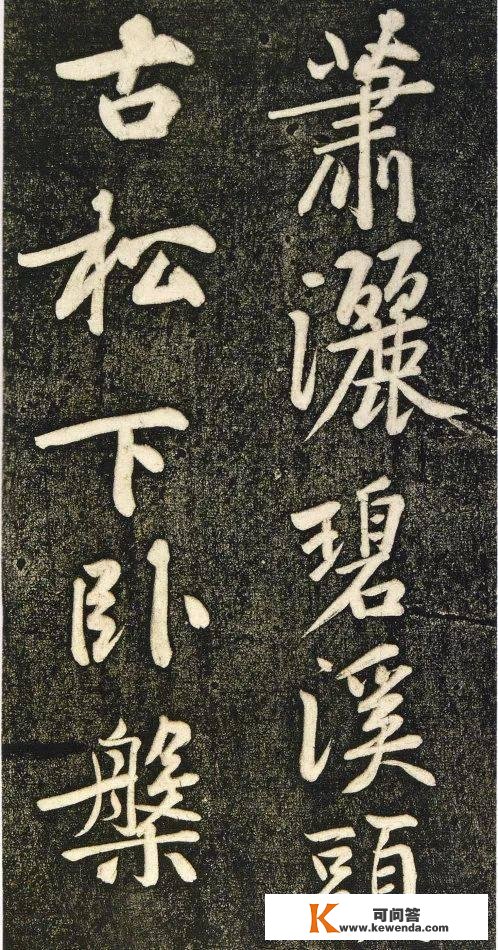 蕭灑碧溪頭
古松下卧槃
K 可问答
www.kewenda.com